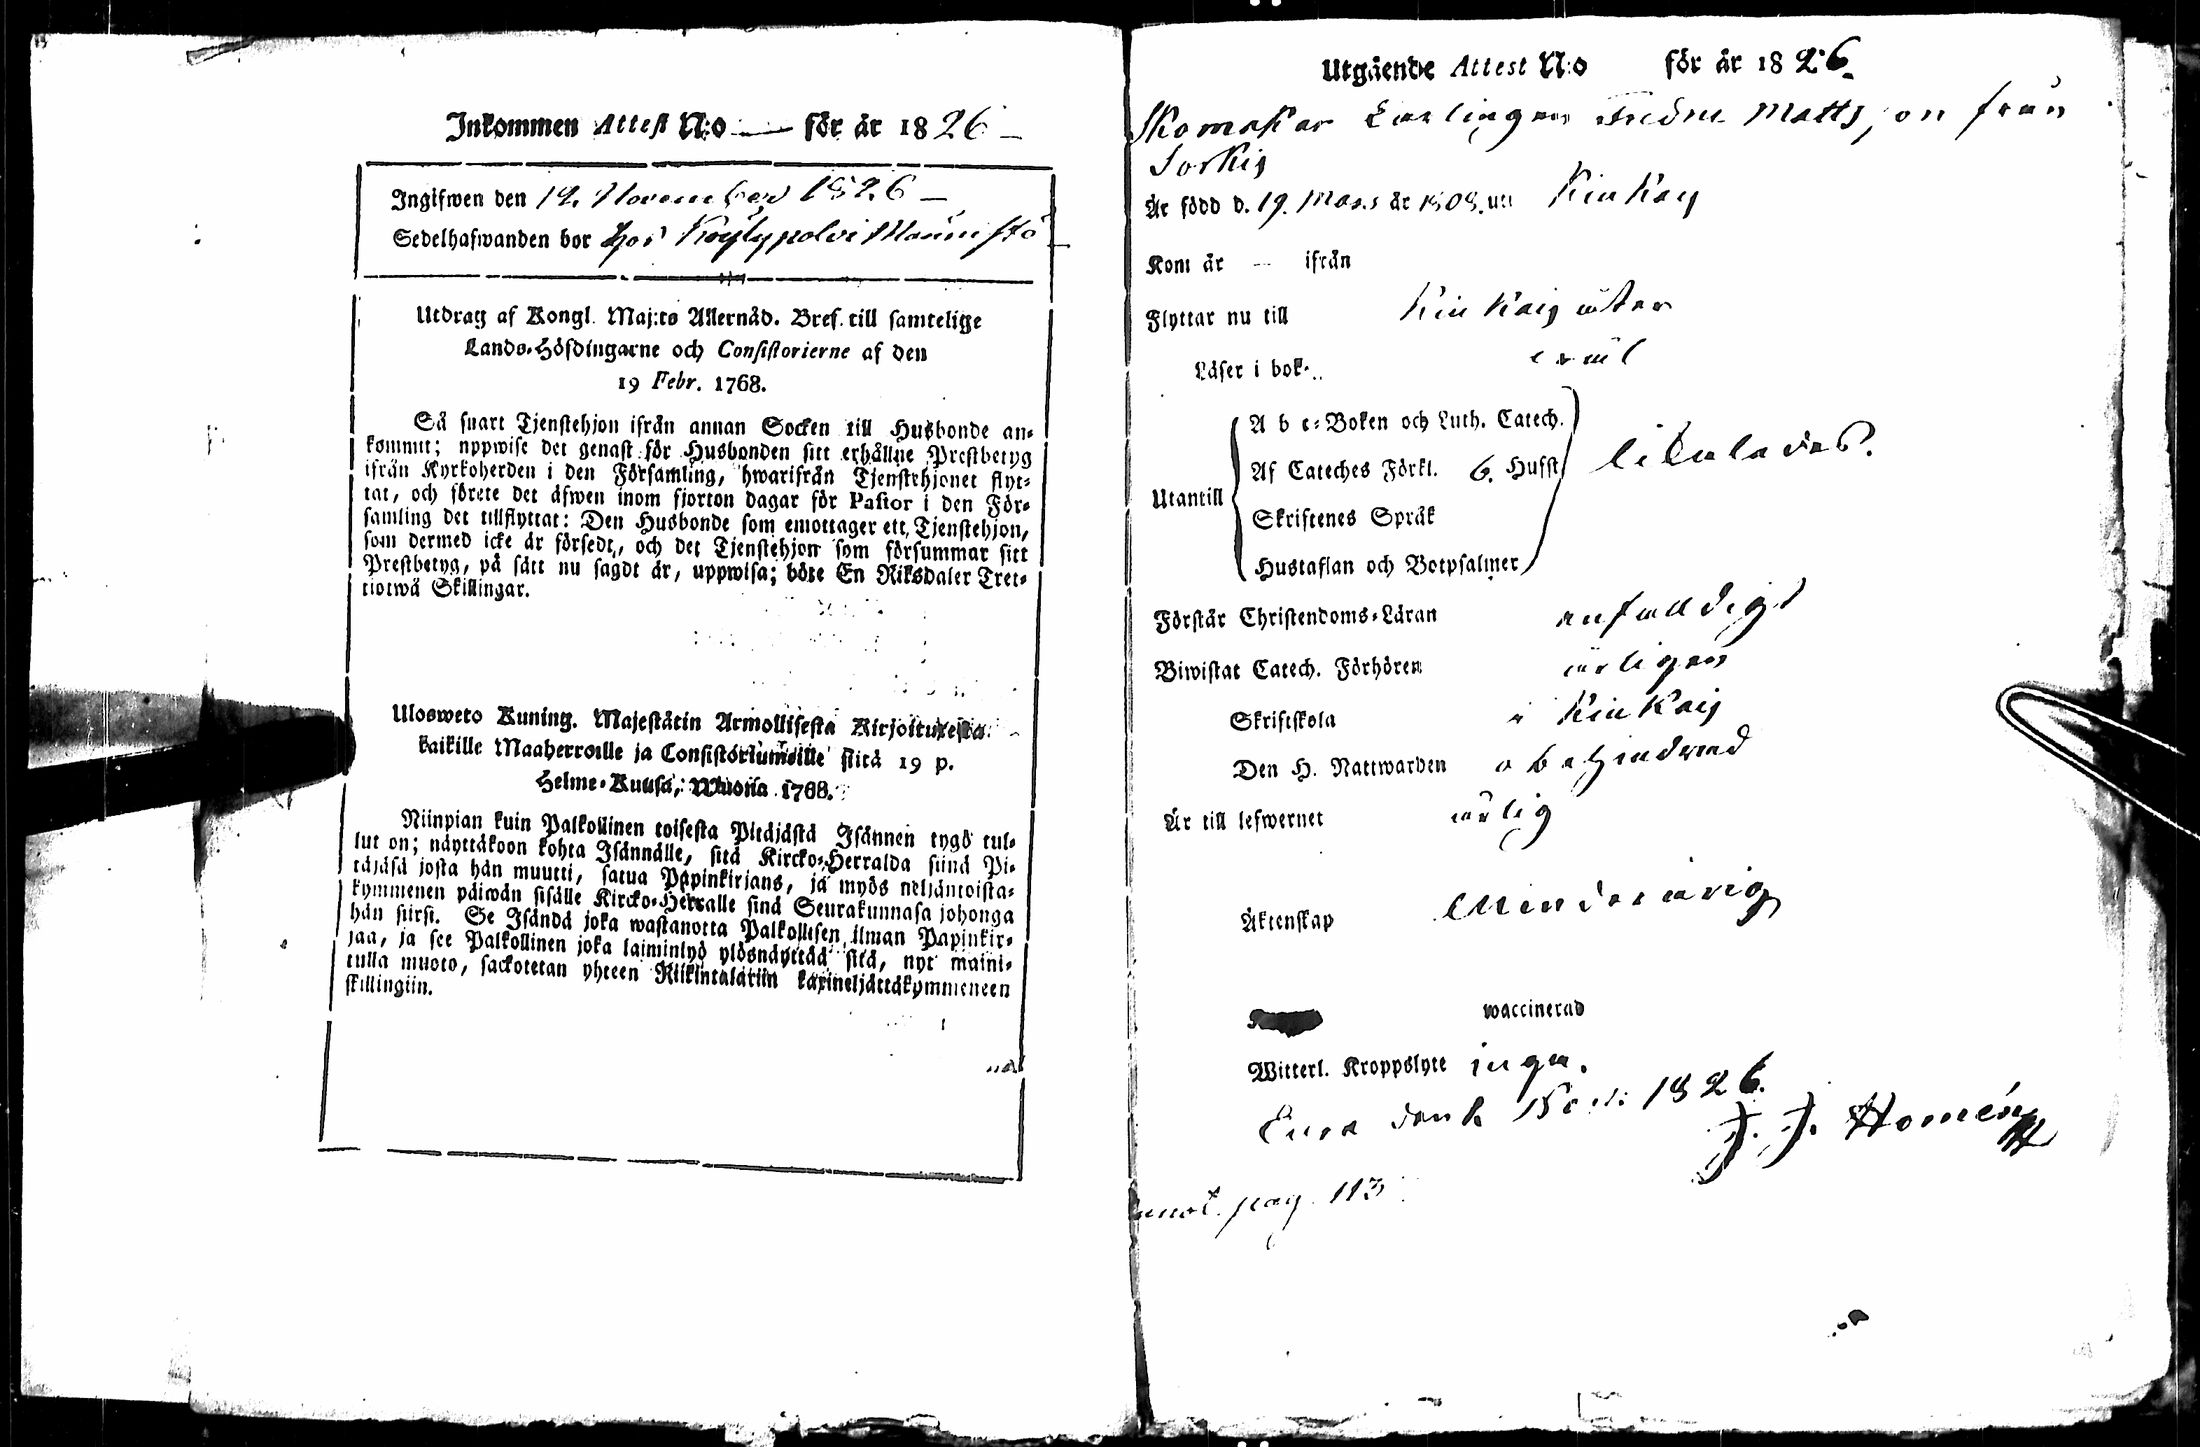 Inkommen Attest N:o — för år 1826 —
Ingifwen den 12. November 1826 —
Sedelhafwanden bor hos Köylypolvi Männistö
Utdrag af Kongl. Maj:ts Allernåd. Bref till samtelige
Lands-Höfdingarne och Consistorierne af den
19 Febr. 1768.
Så snart Tjenstehjon ifrån annan Socken till Husbonde an-
kommit; uppwise det genast för Husbonden sitt erhållne Prestbetyg
ifrån Kyrkoherden i den Församling, hwarifrån Tjenstehjonet flyt-
tat, och förete det äfwen inom fjorton dagar för Pastor i den För-
samling det tillflyttat: Den Husbonde som emottager ett Tjenstehjon,
som dermed icke är försedt, och det Tjenstehjon som försummar sitt
Prestbetyg, på sätt nu sagdt är, uppwisa; böte En Riksdaler Tret-
tiotwå Skillingar.
Ulosweto Kuning. Majestätin Armollisesta Kirjoituxesta
kaikille Maaherroille ja Consistoriumeille siitä 19 p.
Helme-Kuusa, Wuona 1768.
Niinpian kuin Palkollinen toisesta Pitäjästä Isännen tygö tul-
lut on; näyttäkoon kohta Isännälle, sitä Kircko-Herralda siinä Pi-
täjäsä josta hän muutti, satua Papinkirjans, ja myös neljäntoista-
kymmenen päiwän sisälle Kircko-Herralle sinä Seurakunnasa johonga
hän siirsi. Se Isändä joka wastanotta Palkollisen ilman Papinkir-
jaa, ja see Palkollinen joka laiminlyö ylösnäyttää sitä, nyt maini-
tulla muoto, sackotetan yhteen Riikintalariin kaxineljättäkymmeneen
skillingiin.
Utgående Attest N:o för år 1826.
Skomakar Lärlingen Fredric Mattsson från
Sorkis
Är född d. 19. Mars år 1808. uti Kiukais
Kom år — ifrån
Flyttar nu till Kiukais åter
Läser i bok
Utantill
A b c-Boken och Luth. Catech.
Af Cateches Förkl. 6. Hufst.
Skriftenes Språk
Hustaflan och Botpsalmer
likaledes.
Förstår Christendoms-Läran enfaldigt
Biwistat Catech. Förhören årligen
Skriftskola i Kiukais
Den H. Nattwarden obehindrad
Är till lefwernet ärlig
Äktenskap Minderårig
waccinerad
Witterl. Kroppslyte inga.
Eura den 1826.
J. J. Homén
annot. pag. 113